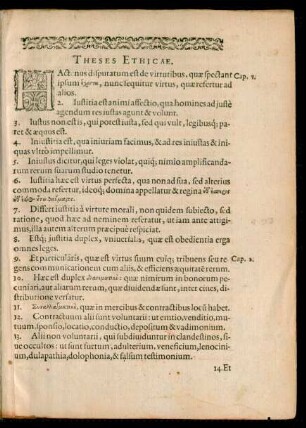 THESES ETHICAE.
HAct. nus disputatum est de virtutibus, quæ spectant Cap. 1.
ipsum ἔχοντα, nunc sequitur virtus, quæ refertur ad
alios.
2. Iustitia est animi affectio, qua homines ad justè
agendum res iustas agunt & volunt.
3. Iustus non est is, qui potest iusta, sed qui vult, legibusq; pa-
ret & æquus est.
4. Iniustitia est, qua iniuriam facimus, & ad res iniustas & ini-
quas vltrò impellimur.
5. Iniustus dicitur, qui leges violat, quiq; nimio amplificanda-
rum rerum suarum studio tenetur.
6. Iustitia hæc est virtus perfecta, qua non ad sua, sed alterius
commoda refertur, ideoq; domina appellatur & regina
7. Differt iustitia à virtute morali, non quidem subiecto, sed
ratione, quod hæc ad neminem referatur, ut iam ante attigi-
mus, illa autem alterum præcipuè respiciat.
8. Estq; iustitia duplex, vniuersalis, quæ est obedientia erga
omnes leges.
9. Et particularis, quæ est virtus suum cuiq; tribuens seu re Cap. 2.
gens communicationem cum aliis, & efficiens æquitatē rerum.
10. Hæc est duplex Διανεμητικὴ quæ nimirum in bonorum pe-
cuniari, aut aliarum rerum, quæ diuidendæ sunt, inter ciues, di-
stributione versatur.
11. Συναλλαγματικὴ, quæ in mercibus & contractibus locū habet.
12. Contractuum alii sunt voluntarii: ut emtio, venditio, mu-
tuum, sponsio, locatio, conductio, depositum & vadimonium.
13. Alii non voluntarii, qui subdiuiduntur in clandestinos, si-
ue occultos: ut sunt furtum, adulterium, veneficium, lenocini-
um, dulapathia, dolophonia, & falsum testimonium.
14. Et